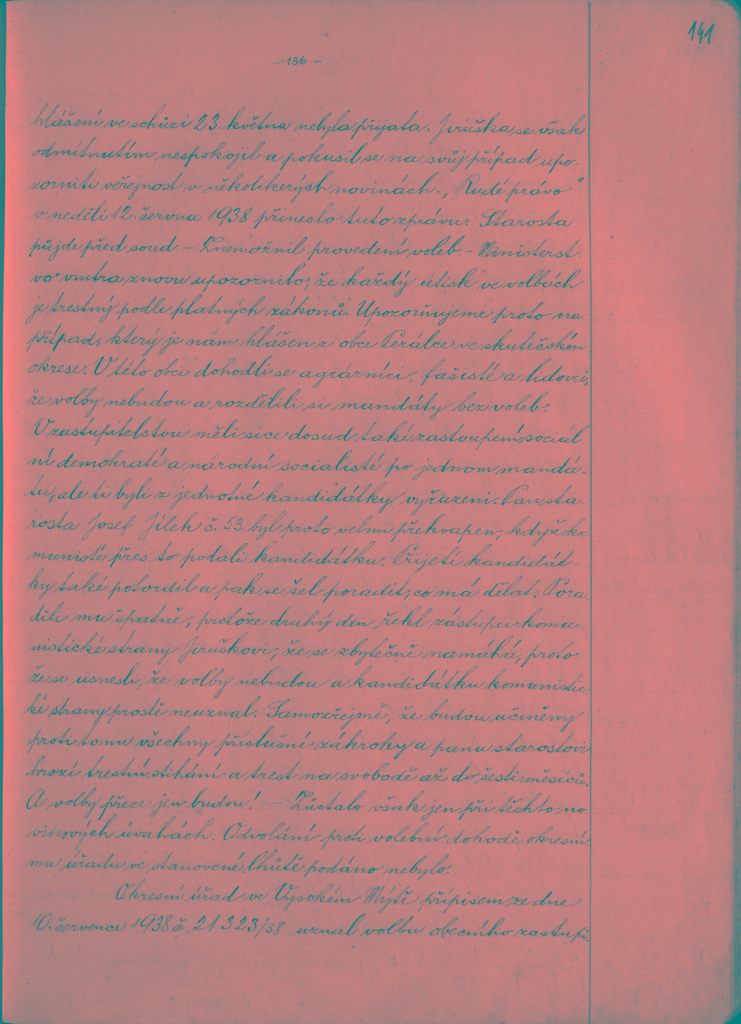 141
- 136 -
hlášení ve schůzi 23. května nebyla přijata. Jiruška se však
odmítnutím nespokojil a pokusil se na svůj případ upo-
zorniti veřejnost v několikerých novinách. „Rudé právo"
v neděli 12. června 1938 přineslo tuto zprávu: Starosta
půjde před soud. - Znemožnil provedení voleb. - Ministerst-
vo vnitra znovu upozornilo, že každý útisk ve volbách
je trestný podle platných zákonů. Upozorňujeme proto na
případ, který je nám hlášen z obce Perálce ve skutečském
okrese. V této obci dohodli se agrárníci, fašisté a lidovci,
že volby nebudou a rozdělili si mandáty bez voleb.
V zastupitelstvu měli sice dosud také zastoupení sociál-
ní demokraté a národní socialisté po jednom mandá-
tu, ale ti byli z jednotné kandidátky vyřazeni. Pan sta-
rosta Josef Jílek č. 53 byl proto velmi překvapen, když ko-
munisté přes to podali kandidátku. Přijetí kandidát-
ky také potvrdil a pak se šel poradit, co má dělat. Pora-
dili mu špatně, protože druhý den řekl zástupci komu-
nistické strany Jiruškovi, že se zbytečně namáhá, proto-
že se usnesli, že volby nebudou a kandidátku komunistic-
ké strany prostě neuznal. Samozřejmě, že budou učiněny
proti tomu všechny příslušné zákroky a panu starostovi
hrozí trestní stihání a trest na svobodě až do šesti měsíců.
A volby přece jen budou! - Zůstalo však jen při těchto no-
vinových úvahách. Odvolání proti volební dohodě okresní-
mu úřadu ve stanovené lhůtě podáno nebylo.
Okresní úřad ve Vysokém Mýtě přípisem ze dne
10. července 1938 č. 21323/38 uznal volbu obecního zastupi-